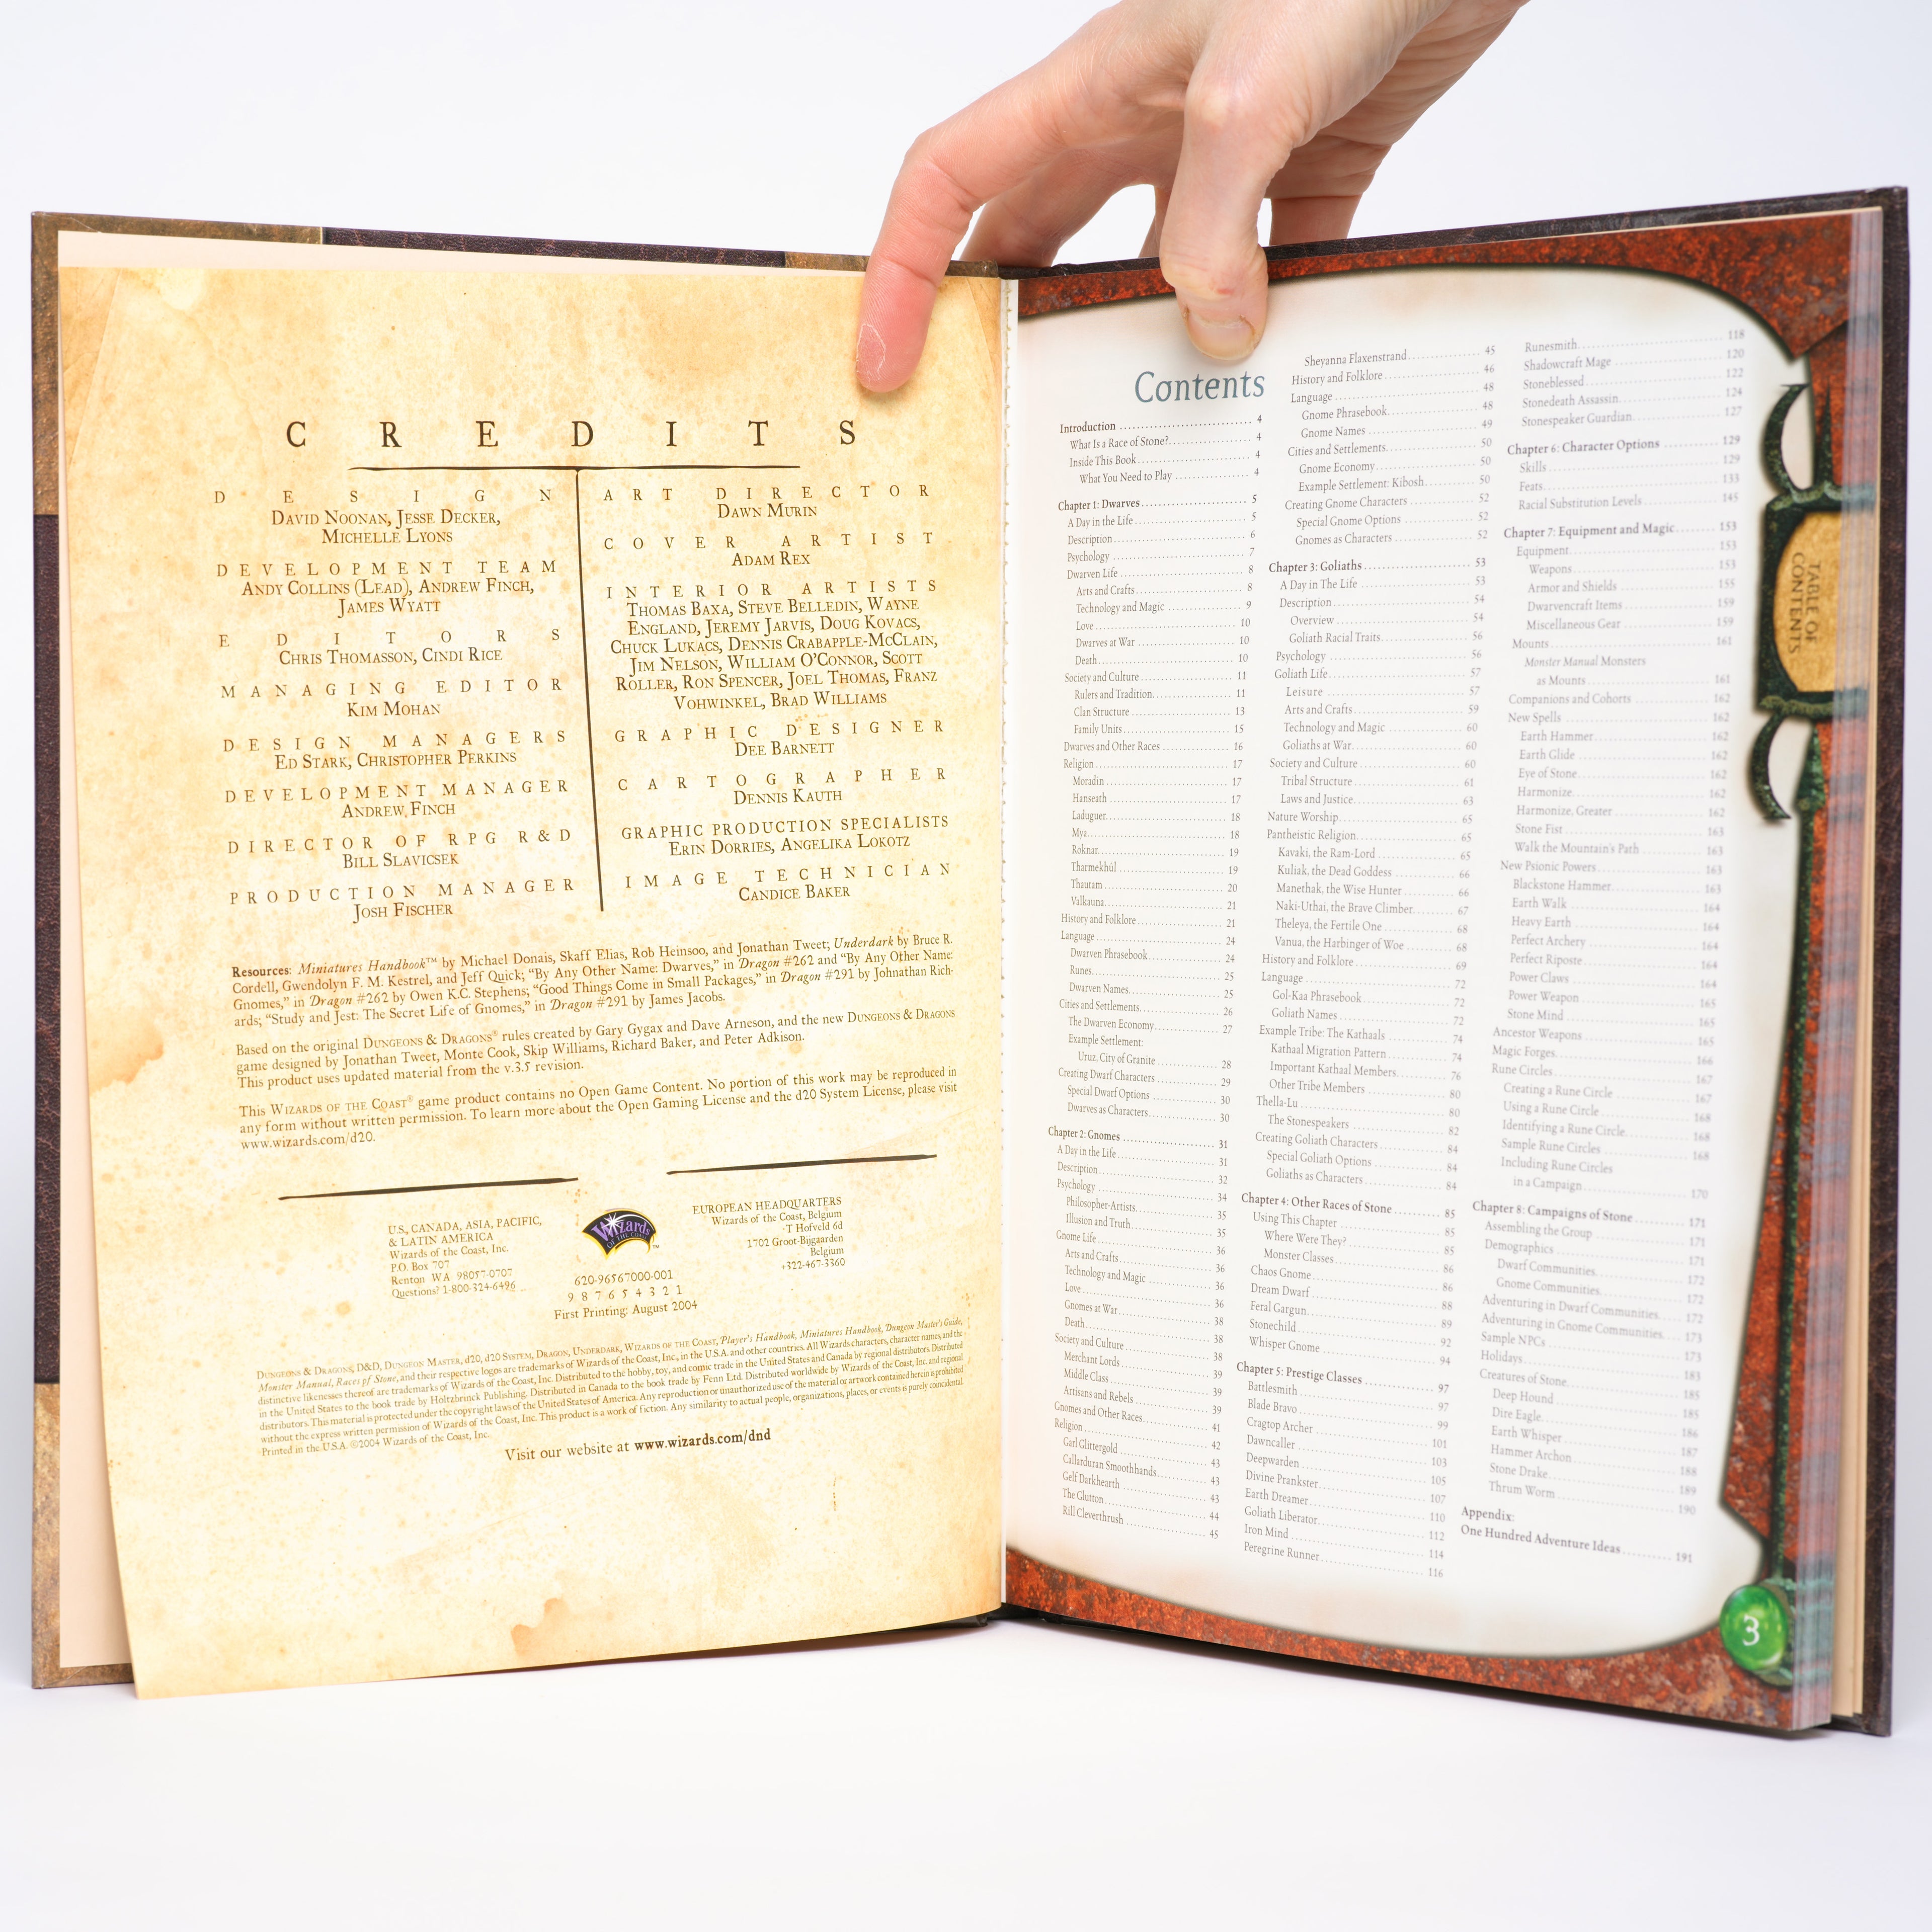 CREDITS
DESIGN
DAVID NOONAN, JESSE DECKER,
MICHELLE LYONS
DEVELOPMENT TEAM
ANDY COLLINS (LEAD), ANDREW FINCH,
JAMES WYATT
EDITORS
CHRIS THOMASSON, CINDI RICE
MANAGING EDITOR
KIM MOHAN
DESIGN MANAGERS
ED STARK, CHRISTOPHER PERKINS
DEVELOPMENT MANAGER
ANDREW FINCH
DIRECTOR OF RPG R&D
BILL SLAVICSEK
PRODUCTION MANAGER
JOSH FISCHER
ART DIRECTOR
DAWN MURIN
COVER ARTIST
ADAM REX
INTERIOR ARTISTS
THOMAS BAXA, STEVE BELLEDIN, WAYNE
ENGLAND, JEREMY JARVIS, DOUG KOVACS,
CHUCK LUKACS, DENNIS CRABAPPLE-MCCLAIN,
JIM NELSON, WILLIAM O'CONNOR, SCOTT
ROLLER, RON SPENCER, JOEL THOMAS, FRANZ
VOHWINKEL, BRAD WILLIAMS
GRAPHIC DESIGNER
DEE BARNETT
CARTOGRAPHER
DENNIS KAUTH
GRAPHIC PRODUCTION SPECIALISTS
ERIN DORRIES, ANGELIKA LOKOTZ
IMAGE TECHNICIAN
CANDICE BAKER
Resources: Miniatures Handbook™ by Michael Donais, Skaff Elias, Rob Heinsoo, and Jonathan Tweet; Underdark by Bruce R.
Cordell, Gwendolyn F. M. Kestrel, and Jeff Quick; "By Any Other Name: Dwarves," in Dragon #262 and "By Any Other Name:
Gnomes," in Dragon #262 by Owen K.C. Stephens; "Good Things Come in Small Packages," in Dragon #291 by Johnathan Rich-
ards; "Study and Jest: The Secret Life of Gnomes," in Dragon #291 by James Jacobs.
Based on the original DUNGEONS & DRAGONS® rules created by Gary Gygax and Dave Arneson, and the new DUNGEONS & DRAGONS
game designed by Jonathan Tweet, Monte Cook, Skip Williams, Richard Baker, and Peter Adkison.
This product uses updated material from the v.3.5 revision.
This WIZARDS OF THE COAST® game product contains no Open Game Content. No portion of this work may be reproduced in
any form without written permission. To learn more about the Open Gaming License and the d20 System License, please visit
www.wizards.com/d20.
U.S., CANADA, ASIA, PACIFIC,
& LATIN AMERICA
Wizards of the Coast, Inc.
P.O. Box 707
Renton WA 98057-0707
Questions? 1-800-324-6496
Wizards
OF THE COAST ™
620-96567000-001
9 8 7 6 5 4 3 2 1
First Printing: August 2004
EUROPEAN HEADQUARTERS
Wizards of the Coast, Belgium
T Hofveld 6d
1702 Groot-Bijgaarden
Belgium
+322-467-3360
DUNGEONS & DRAGONS, D&D, DUNGEON MASTER, d20, d20 SYSTEM, DRAGON, UNDERDARK, WIZARDS OF THE COAST, Player's Handbook, Miniatures Handbook, Dungeon Master's Guide,
Monster Manual, Races of Stone, and their respective logos are trademarks of Wizards of the Coast, Inc., in the U.S.A. and other countries. All Wizards characters, character names, and the
distinctive likenesses thereof are trademarks of Wizards of the Coast, Inc. Distributed to the hobby, toy, and comic trade in the United States and Canada by regional distributors. Distributed
in the United States to the book trade by Holtzbrinck Publishing. Distributed in Canada to the book trade by Fenn Ltd. Distributed worldwide by Wizards of the Coast, Inc. and regional
distributors. This material is protected under the copyright laws of the United States of America. Any reproduction or unauthorized use of the material or artwork contained herein is prohibited
without the express written permission of Wizards of the Coast, Inc. This product is a work of fiction. Any similarity to actual people, organizations, places, or events is purely coincidental.
Printed in the U.S.A. ©2004 Wizards of the Coast, Inc.
Visit our website at www.wizards.com/dnd
Contents
Introduction 4
What Is a Race of Stone? 4
Inside This Book 4
What You Need to Play 4
Chapter 1: Dwarves 5
A Day in the Life 5
Description 6
Psychology 7
Dwarven Life 8
Arts and Crafts 8
Technology and Magic 9
Love 10
Dwarves at War 10
Death 10
Society and Culture 11
Rulers and Tradition 11
Clan Structure 13
Family Units 15
Dwarves and Other Races 16
Religion 17
Moradin 17
Hanseath 17
Laduguer 18
Mya 18
Roknar 19
Tharmekhûl 19
Thautam 20
Valkauna 21
History and Folklore 21
Language 24
Dwarven Phrasebook 24
Runes 25
Dwarven Names 25
Cities and Settlements 26
The Dwarven Economy 27
Example Settlement:
Uruz, City of Granite 28
Creating Dwarf Characters 29
Special Dwarf Options 30
Dwarves as Characters 30
Chapter 2: Gnomes 31
A Day in the Life 31
Description 32
Psychology 34
Philosopher-Artists 35
Illusion and Truth 35
Gnome Life 36
Arts and Crafts 36
Technology and Magic 36
Love 36
Gnomes at War 38
Death 38
Society and Culture 38
Merchant Lords 39
Middle Class 39
Artisans and Rebels 39
Gnomes and Other Races 41
Religion 42
Garl Glittergold 43
Callarduran Smoothhands 43
Gelf Darkhearth 43
The Glutton 44
Rill Cleverthrush 45
Sheyanna Flaxenstrand 45
History and Folklore 46
Language 48
Gnome Phrasebook 48
Gnome Names 49
Cities and Settlements 50
Gnome Economy 50
Example Settlement: Kibosh 50
Creating Gnome Characters 52
Special Gnome Options 52
Gnomes as Characters 52
Chapter 3: Goliaths 53
A Day in The Life 53
Description 54
Overview 54
Goliath Racial Traits 56
Psychology 56
Goliath Life 57
Leisure 57
Arts and Crafts 59
Technology and Magic 60
Goliaths at War 60
Society and Culture 60
Tribal Structure 61
Laws and Justice 63
Nature Worship 65
Pantheistic Religion 65
Kavaki, the Ram-Lord 65
Kuliak, the Dead Goddess 66
Manethak, the Wise Hunter 66
Naki-Uthai, the Brave Climber 67
Theleya, the Fertile One 68
Vanua, the Harbinger of Woe 68
History and Folklore 69
Language 72
Gol-Kaa Phrasebook 72
Goliath Names 72
Example Tribe: The Kathaals 74
Kathaal Migration Pattern 74
Important Kathaal Members 76
Other Tribe Members 80
Thella-Lu 80
The Stonespeakers 82
Creating Goliath Characters 84
Special Goliath Options 84
Goliaths as Characters 84
Chapter 4: Other Races of Stone 85
Using This Chapter 85
Where Were They? 85
Monster Classes 86
Chaos Gnome 86
Dream Dwarf 88
Feral Gargun 89
Stonechild 92
Whisper Gnome 94
Chapter 5: Prestige Classes 97
Battlesmith 97
Blade Bravo 99
Cragtop Archer 101
Dawncaller 103
Deepwarden 105
Divine Prankster 107
Earth Dreamer 110
Goliath Liberator 112
Iron Mind 114
Peregrine Runner 116
Runesmith 118
Shadowcraft Mage 120
Stoneblessed 122
Stonedeath Assassin 124
Stonespeaker Guardian 127
Chapter 6: Character Options 129
Skills 129
Feats 133
Racial Substitution Levels 145
Chapter 7: Equipment and Magic 153
Equipment 153
Weapons 153
Armor and Shields 155
Dwarvencraft Items 159
Miscellaneous Gear 159
Mounts 161
Monster Manual Monsters
as Mounts 161
Companions and Cohorts 162
New Spells 162
Earth Hammer 162
Earth Glide 162
Eye of Stone 162
Harmonize 162
Harmonize, Greater 162
Stone Fist 163
Walk the Mountain's Path 163
New Psionic Powers 163
Blackstone Hammer 163
Earth Walk 164
Heavy Earth 164
Perfect Archery 164
Perfect Riposte 164
Power Claws 164
Power Weapon 165
Stone Mind 165
Ancestor Weapons 165
Magic Forges 166
Rune Circles 167
Creating a Rune Circle 167
Using a Rune Circle 168
Identifying a Rune Circle 168
Sample Rune Circles 168
Including Rune Circles
in a Campaign 170
Chapter 8: Campaigns of Stone 171
Assembling the Group 171
Demographics 171
Dwarf Communities 172
Gnome Communities 172
Adventuring in Dwarf Communities 172
Adventuring in Gnome Communities 173
Sample NPCs 173
Holidays 183
Creatures of Stone 185
Deep Hound 185
Dire Eagle 186
Earth Whisper 187
Hammer Archon 188
Stone Drake 189
Thrum Worm 190
Appendix:
One Hundred Adventure Ideas 191
TABLE OF
CONTENTS
3